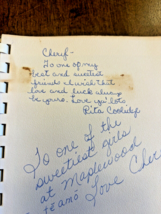 Cherif-
To one of my
best and sweetest
friends cherish that
love and luck always
be yours. Love you lots
Rita Coolidge
To one of the
sweetest girls
at Maplewood
te amo Love Cher